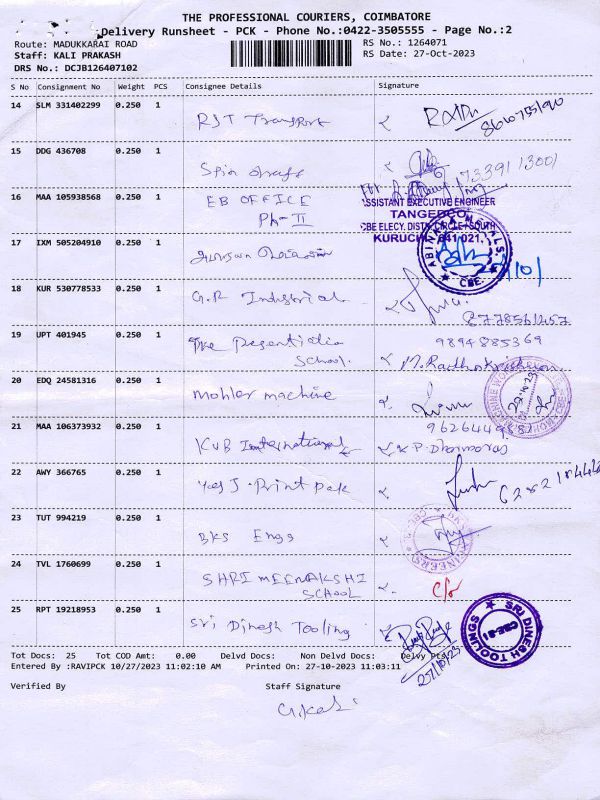 THE PROFESSIONAL COURIERS, COIMBATORE
Delivery Runsheet - PCK - Phone No.:0422-3505555 - Page No.:2
Route: MADUKKARAI ROAD
RS No.: 1264071
Staff: KALI PRAKASH
RS Date: 27-Oct-2023
DRS No.: DCJB126407102
S No Consignment No Weight PCS Consignee Details Signature
14 SLM 331402299 0.250 1
RJT Transport
15 DDG 436708 0.250 1
Spin
7339113001
16 MAA 105938568 0.250 1
EB OFFICE
Ph-II
ASSISTANT EXECUTIVE ENGINEER
TANGEDCO,
CBE ELECY. DISTN. CIRCLE/SOUTH
KURUCHI, 641 021.
17 IXM 505204910 0.250 1
ABINAYA METALS
CBE.
18 KUR 530778533 0.250 1
G.R Industrial
19 UPT 401945 0.250 1
The Presentation
School.
9894885369
M. Radhakrishnan
20 EDQ 24581316 0.250 1
Mohler machine
21 MAA 106373932 0.250 1
KVB International
P. Dharmaraj
22 AWY 366765 0.250 1
Yes J. Print Pak
23 TUT 994219 0.250 1
BKS Engg
24 TVL 1760699 0.250 1
SHRI MEENAKSHI
SCHOOL
C/o
25 RPT 19218953 0.250 1
Sri Dinesh Tooling
SRI DINESH TOOLINGS
CBE-21
27/10/23
Tot Docs: 25 Tot COD Amt: 0.00 Delvd Docs: Non Delvd Docs: Delvy Pts
Entered By :RAVIPCK 10/27/2023 11:02:10 AM Printed On: 27-10-2023 11:03:11
Verified By Staff Signature